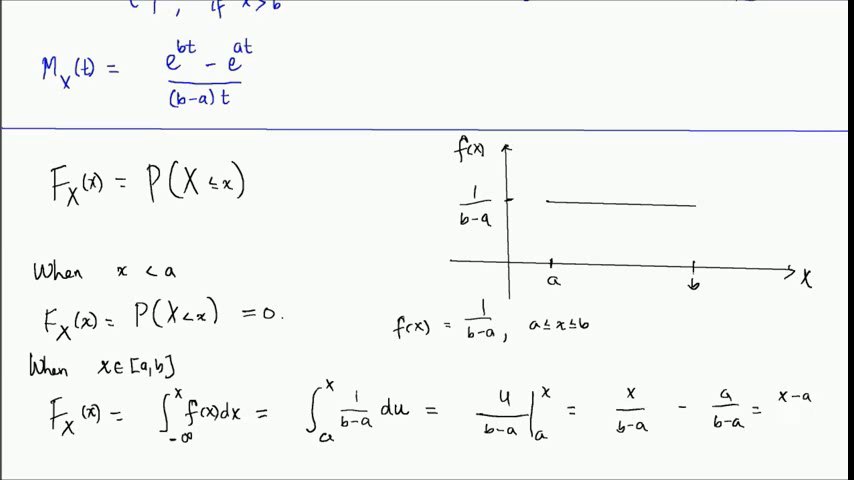 1 , if x > b
M_X(t) = (e^{bt} - e^{at}) / ((b-a)t)
F_X(x) = P(X ≤ x)
f(x)
1/(b-a)
a b x
When x < a
F_X(x) = P(X < x) = 0.
f(x) = 1/(b-a), a ≤ x ≤ b
When x ∈ [a,b]
F_X(x) = ∫_{-∞}^{x} f(x)dx = ∫_{a}^{x} 1/(b-a) du = u/(b-a) |_{a}^{x} = x/(b-a) - a/(b-a) = x-a